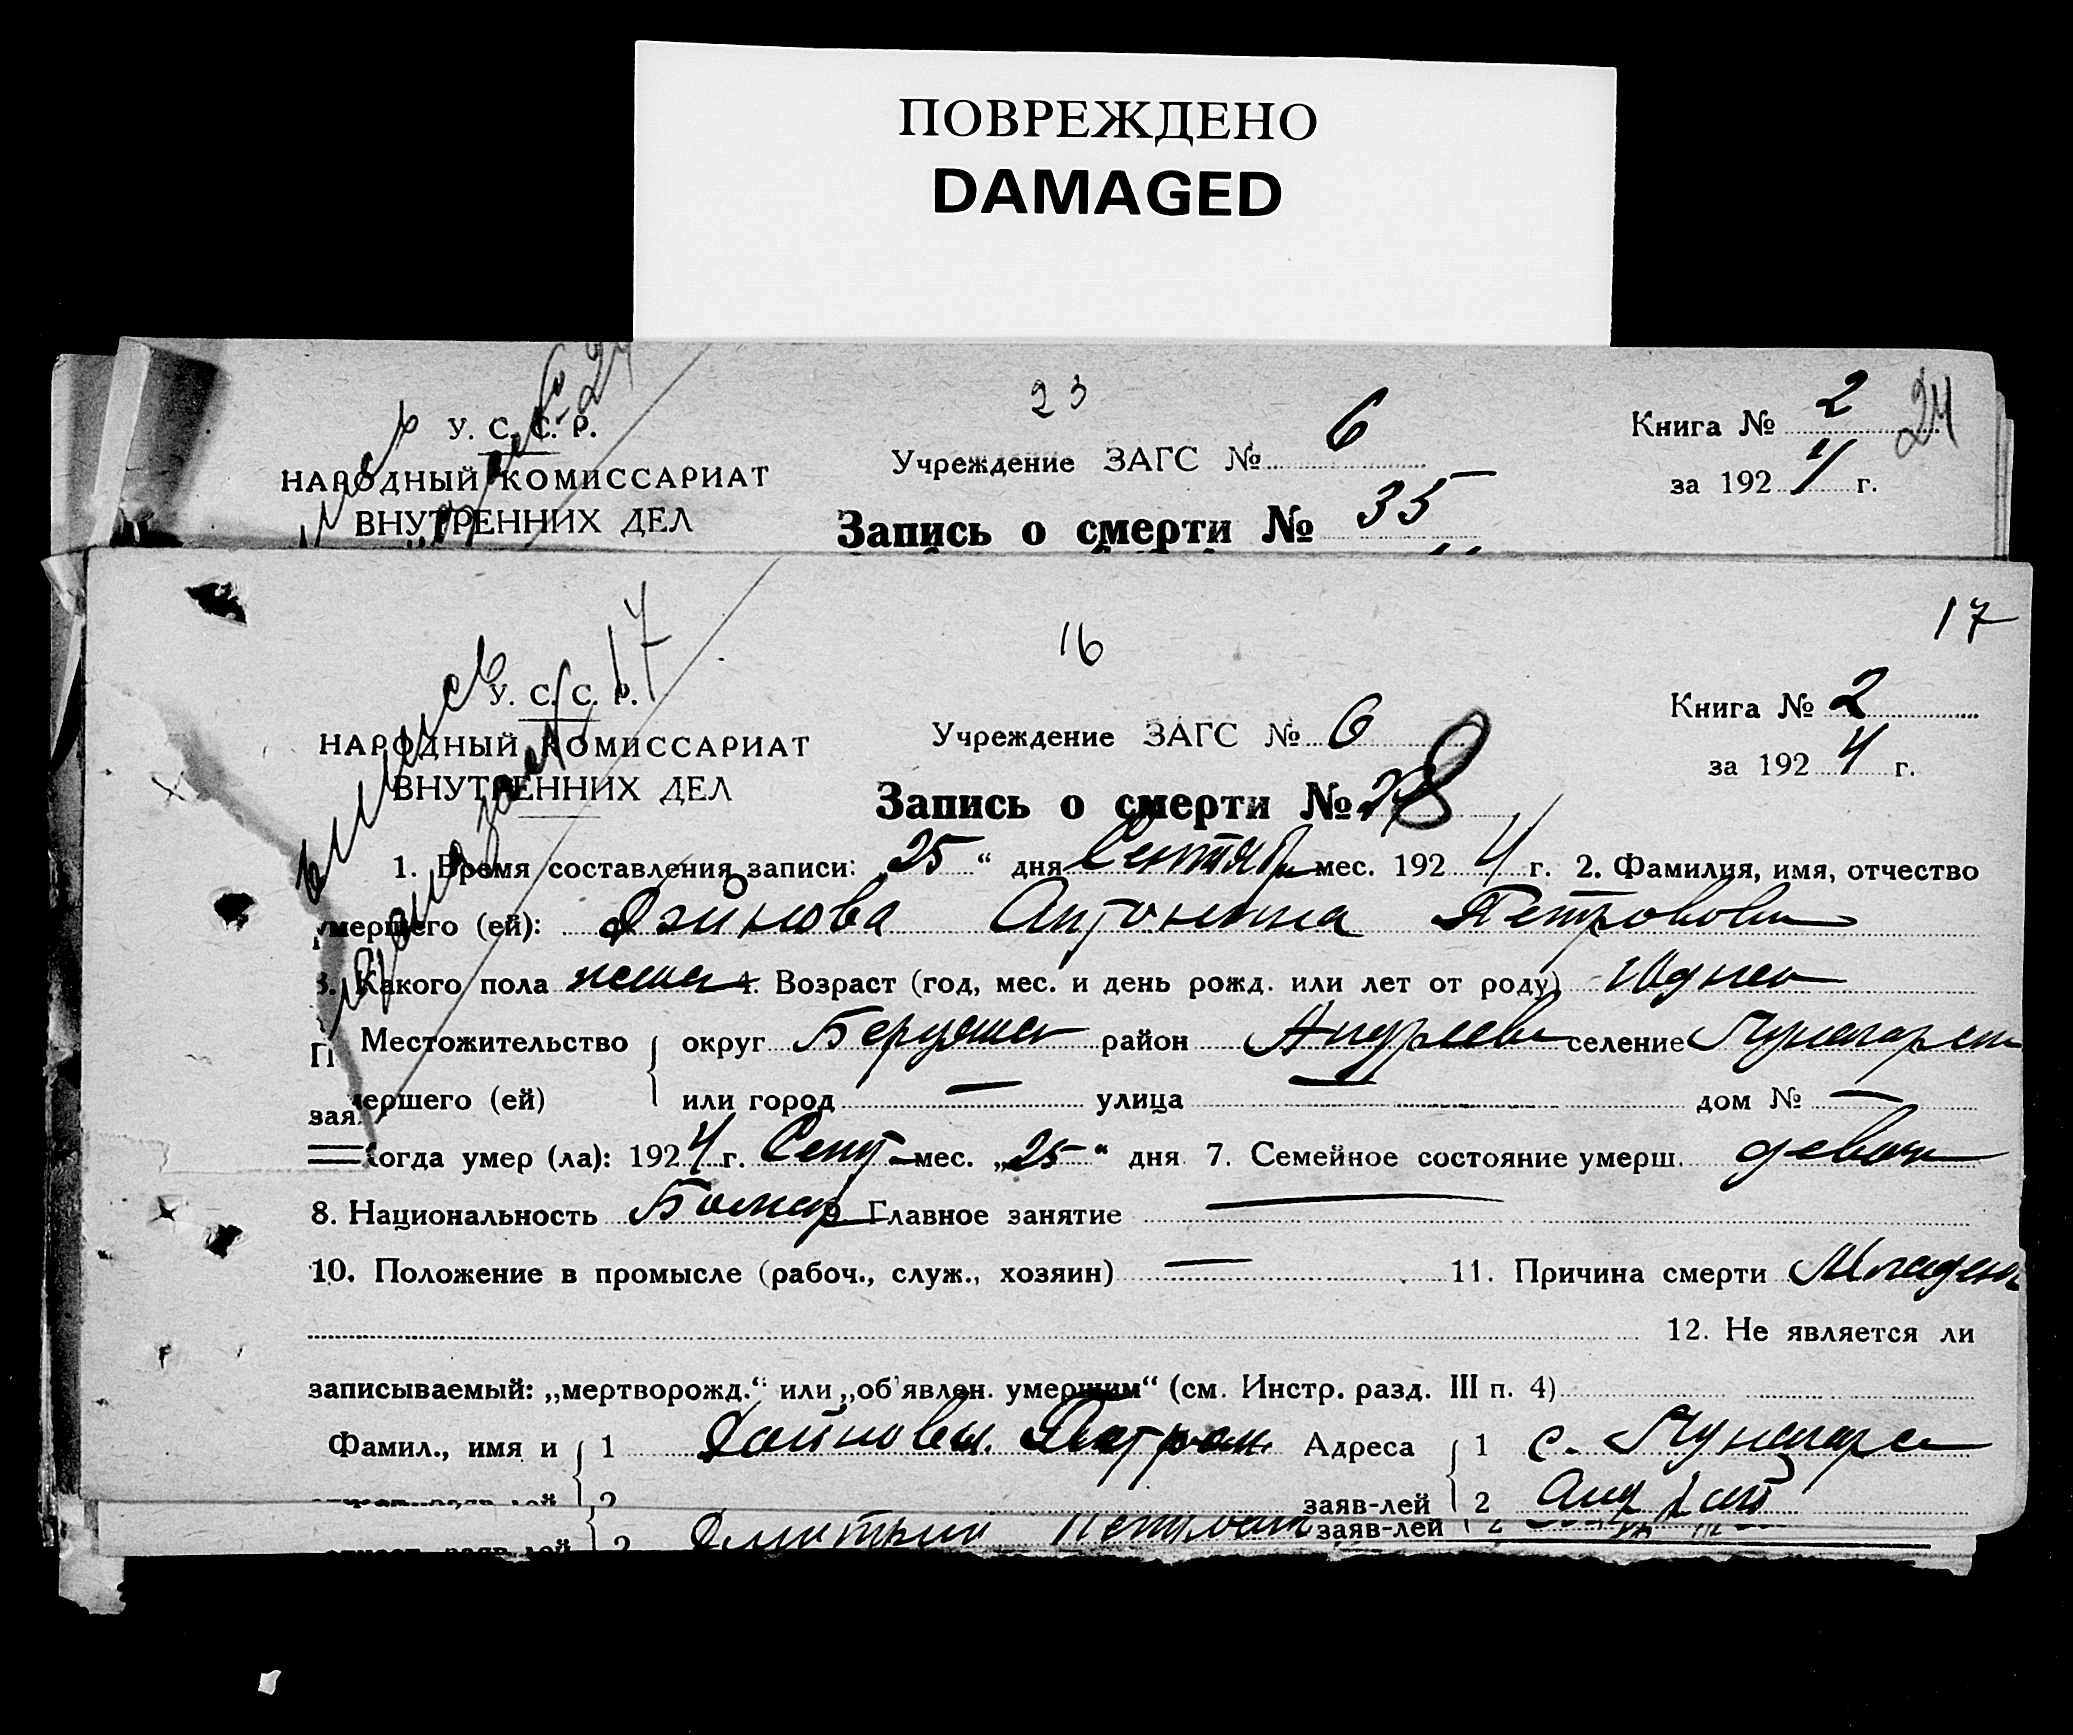 ПОВРЕЖДЕНО
DAMAGED
23
У. С. С. Р.
НАРОДНЫЙ КОМИССАРИАТ
ВНУТРЕННИХ ДЕЛ
Учреждение ЗАГС № 6
Запись о смерти № 35
Книга № 2
24
за 1924 г.
17
16
У. С. С. Р.
НАРОДНЫЙ КОМИССАРИАТ
ВНУТРЕННИХ ДЕЛ
17
Учреждение ЗАГС № 6
Запись о смерти № 28
Книга № 2
за 1924 г.
1. Время составления записи: „25“ дня Сентябр мес. 1924 г. 2. Фамилия, имя, отчество
умершего (ей): Дэйнова Антонина Петрововн
3. Какого пола женск 4. Возраст (год, мес. и день рожд. или лет от роду)
Местожительство округ Бердянск район Андреевк селение
умершего (ей) или город — улица — дом № —
Когда умер (ла): 1924 г. Сент мес. „25“ дня 7. Семейное состояние умерш.
8. Национальность Болгар 9. Главное занятие —
10. Положение в промысле (рабоч., служ., хозяин) — 11. Причина смерти Младен
12. Не является ли
записываемый: „мертворожд.“ или „об'явлен. умершим“ (см. Инстр. разд. III п. 4)
Фамил., имя и 1 Дайновы. Петром Адреса 1 с.
2 заяв-лей 2
2 Дмитрий заяв-лей 2